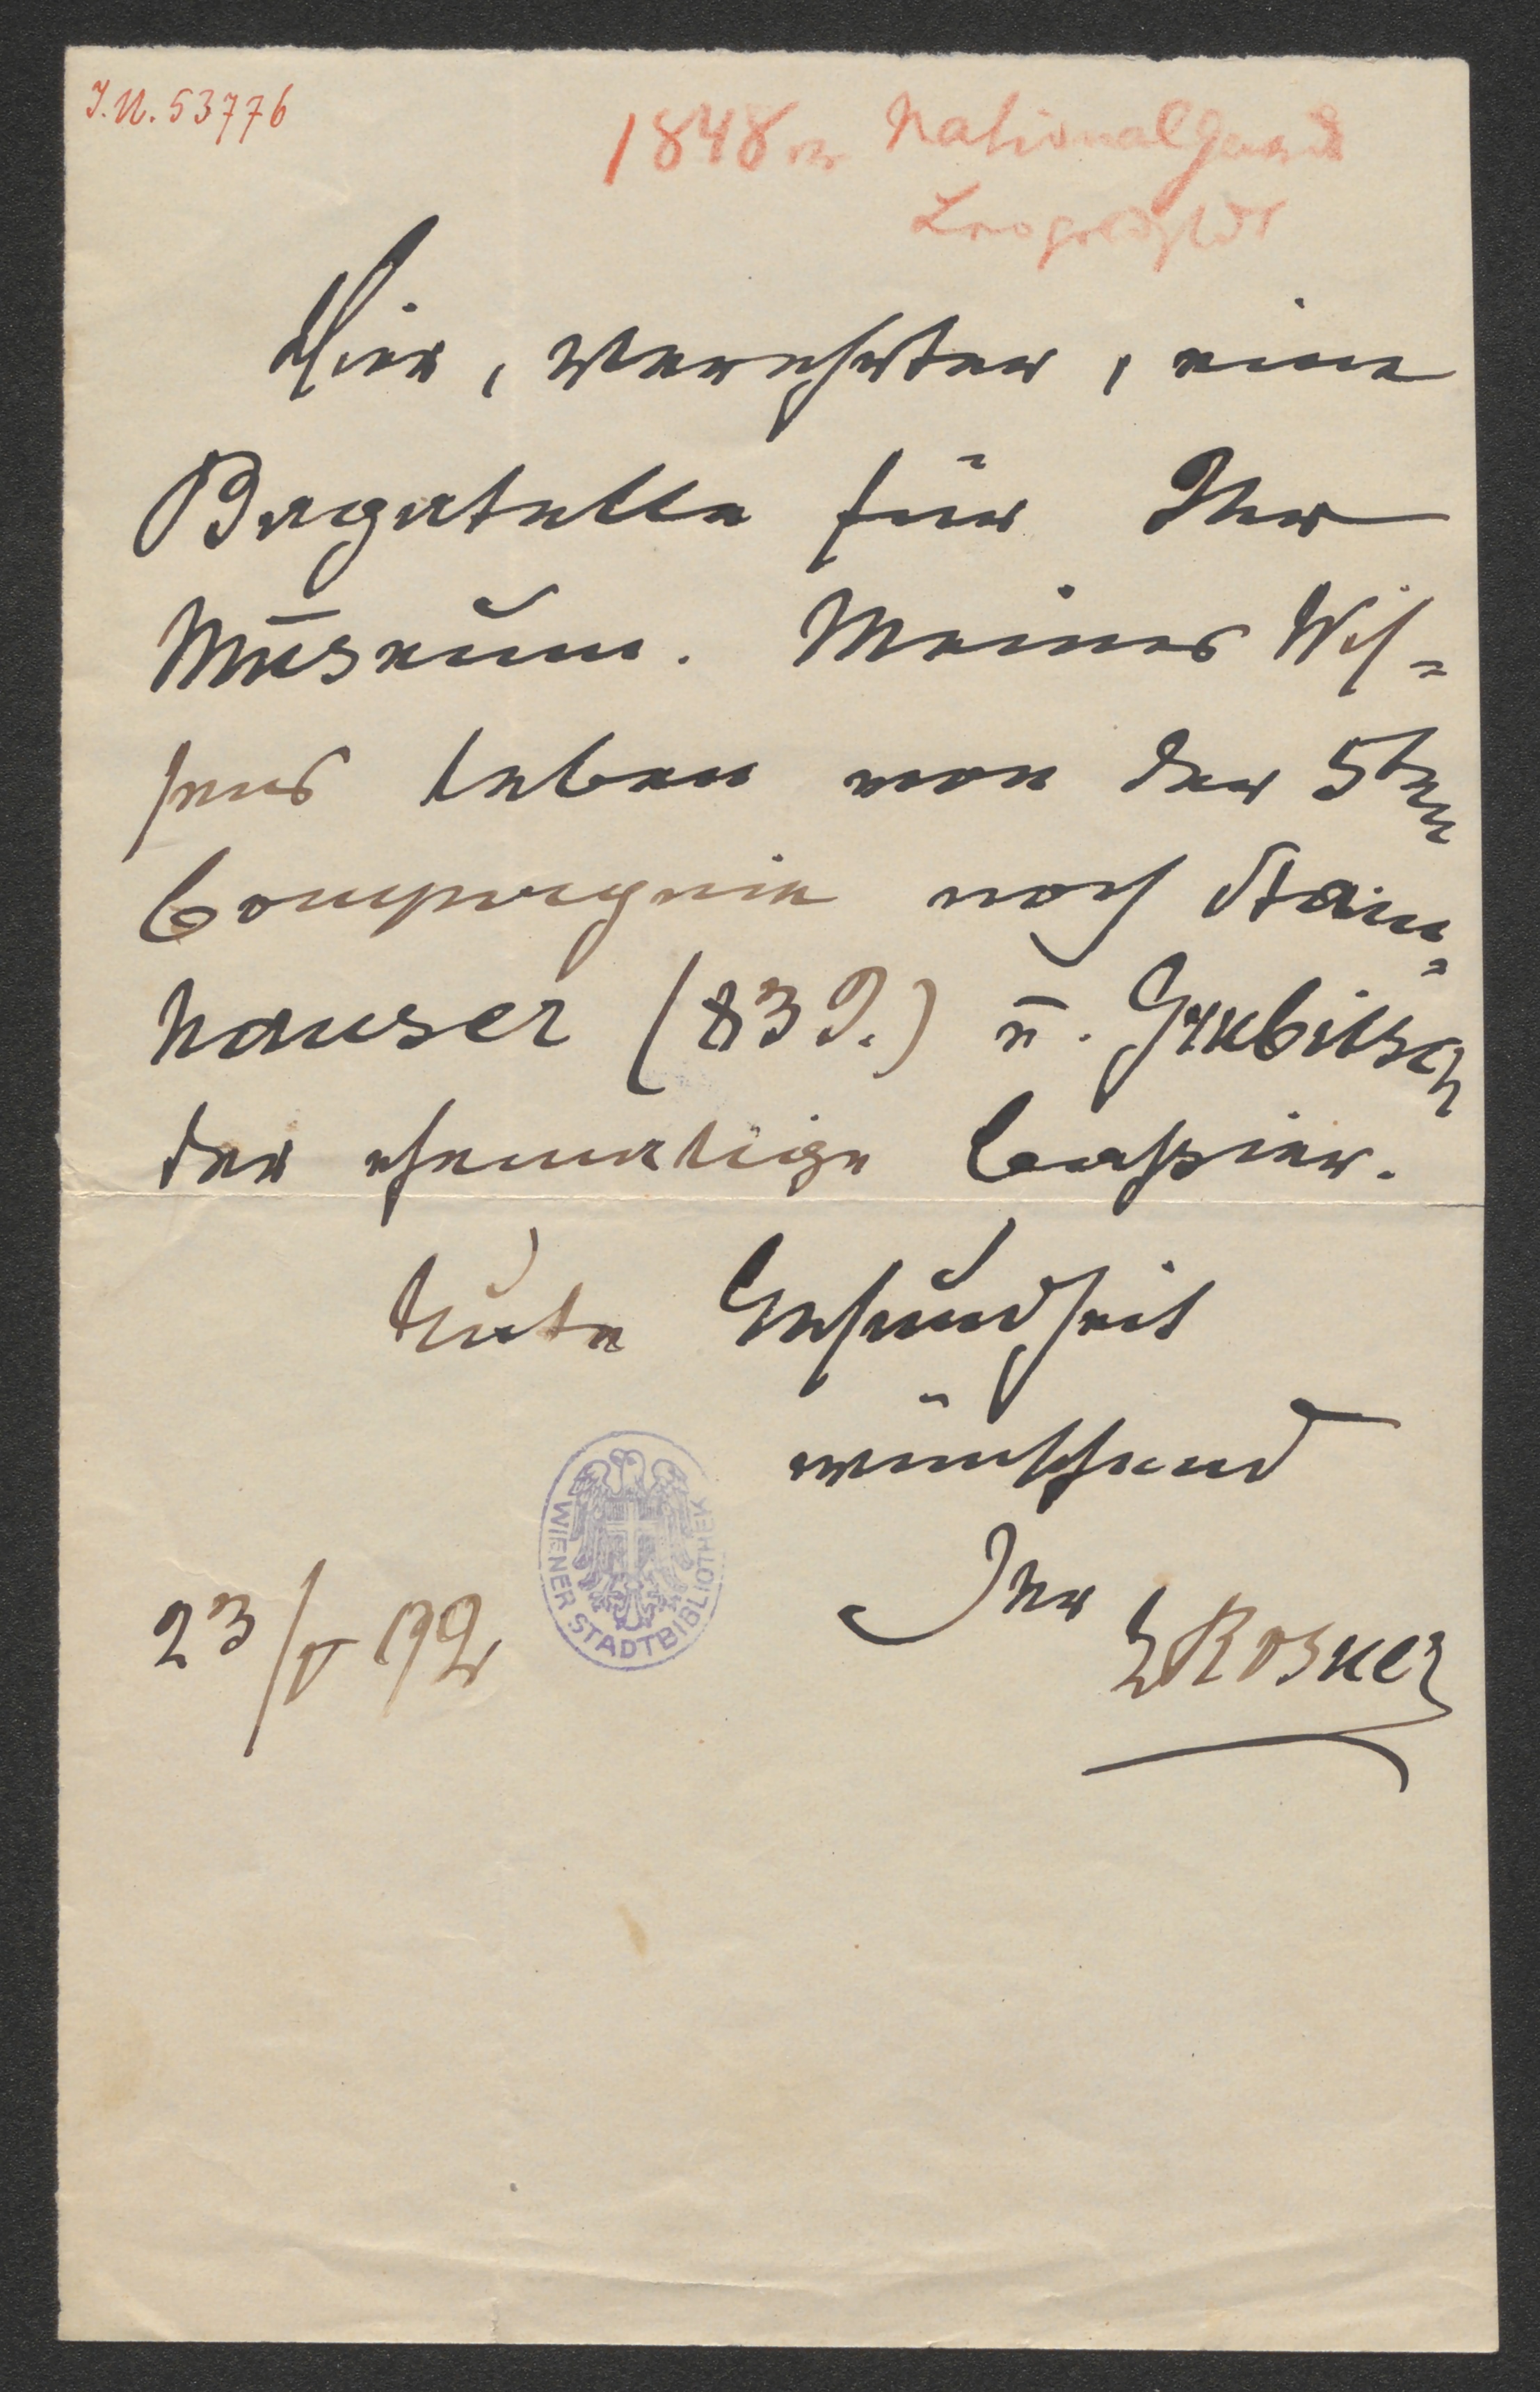 J.N. 53776
1848er Nationalgarde
Leopoldstdt
Hier, Verehrter, eine
Bagatelle für Ihr
Museum. Meines Wis=
sens leben von der 5ten
Compagnie noch Stain=
hauser (83 J.) u. Grubitsch
der ehemalige Cassier.
Gute Gesundheit
wünschend
Ihr
LRosner
23/V 92
WIENER STADTBIBLIOTHEK